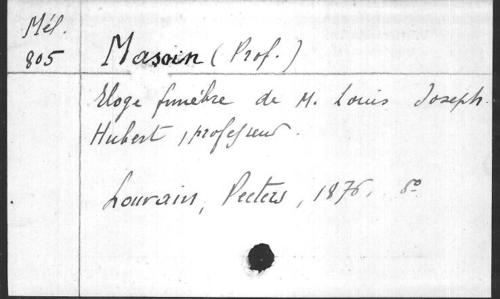 Mél.
805
Masoin (Prof.)
Eloge funèbre de M. Louis Joseph
Hubert, professeur.
Louvain, Peeters, 1876. 8º